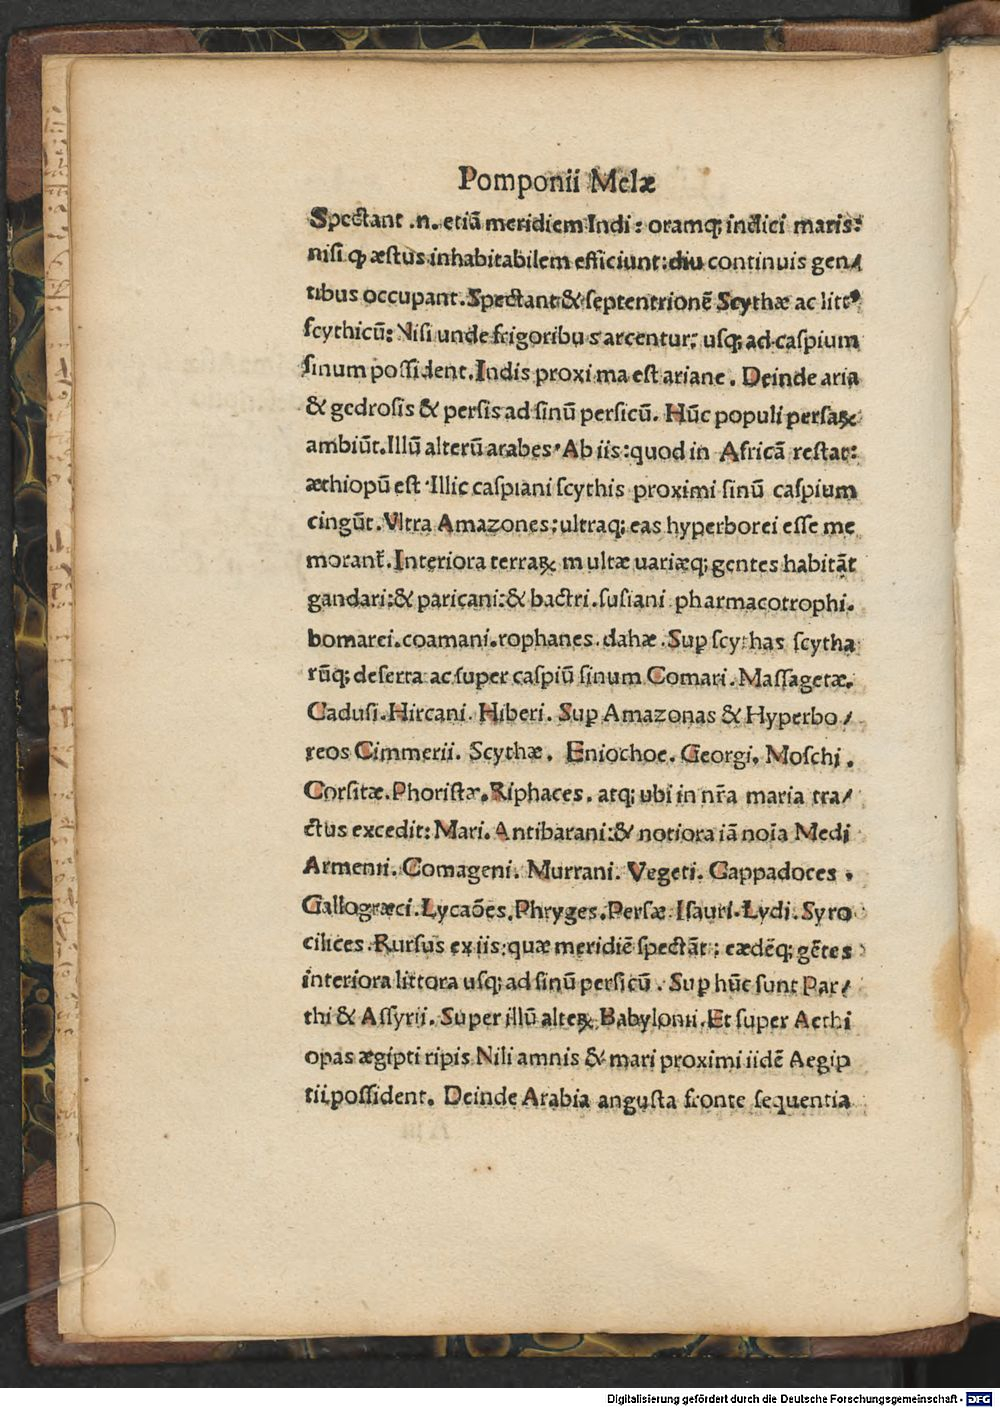 Pomponii Melæ
Spectant .n. etiā meridiem Indi: oramq; indici maris:
nisi ꝙ æstus inhabitabilem efficiunt: diu continuis gen/
tibus occupant. Spectant & septentrionē Scythæ ac littꝰ
scythicū: Nisi unde frigoribus arcentur: usq; ad caspium
sinum possident. Indis proxima est ariane. Deinde aria
& gedrosis & persis ad sinū persicū. Hūc populi persaꝝ
ambiūt. Illū alterū arabes. Ab iis: quod in Africā restat:
æthiopū est. Illic caspiani scythis proximi sinū caspium
cingūt. Vltra Amazones: ultraq; eas hyperborei esse me
morant̃. Interiora terraꝝ multæ uariæq; gentes habitāt
gandari: & paricani: & bactri. susiani pharmacotrophi.
bomarei. coamani. rophanes. dahæ. Suꝑ scythas scytha
rūq; deserta ac super caspiū sinum Comari. Massagetæ.
Cadusi. Hircani. Hiberi. Suꝑ Amazonas & Hyperbo/
reos Cimmerii. Scythæ. Eniochoe. Georgi. Moschi.
Corsitæ. Phoristæ. Riphaces. atq; ubi in nr̄a maria tra/
ctus excedit: Mari. Antibarani: & notiora iā noīa Medi
Armenii. Comageni. Murrani. Vegeti. Cappadoces.
Gallogræci. Lycaōes. Phryges. Persæ. Isauri. Lydi. Syro
cilices. Rursus ex iis: quæ meridiē spectāt: eædēq; gētes
interiora littora usq; ad sinū persicū. Suꝑ hūc sunt Par/
thi & Assyrii. Super illū alteꝝ Babylonii. Et super Aethi
opas ægipti ripis Nili amnis & mari proximi iidē Aegip
tii possident. Deinde Arabia angusta fronte sequentia
Digitalisierung gefördert durch die Deutsche Forschungsgemeinschaft - DFG